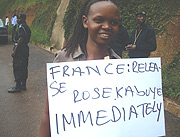 FRANCE: RELEA-
SE ROSE KABUYE
IMMEDIATELY